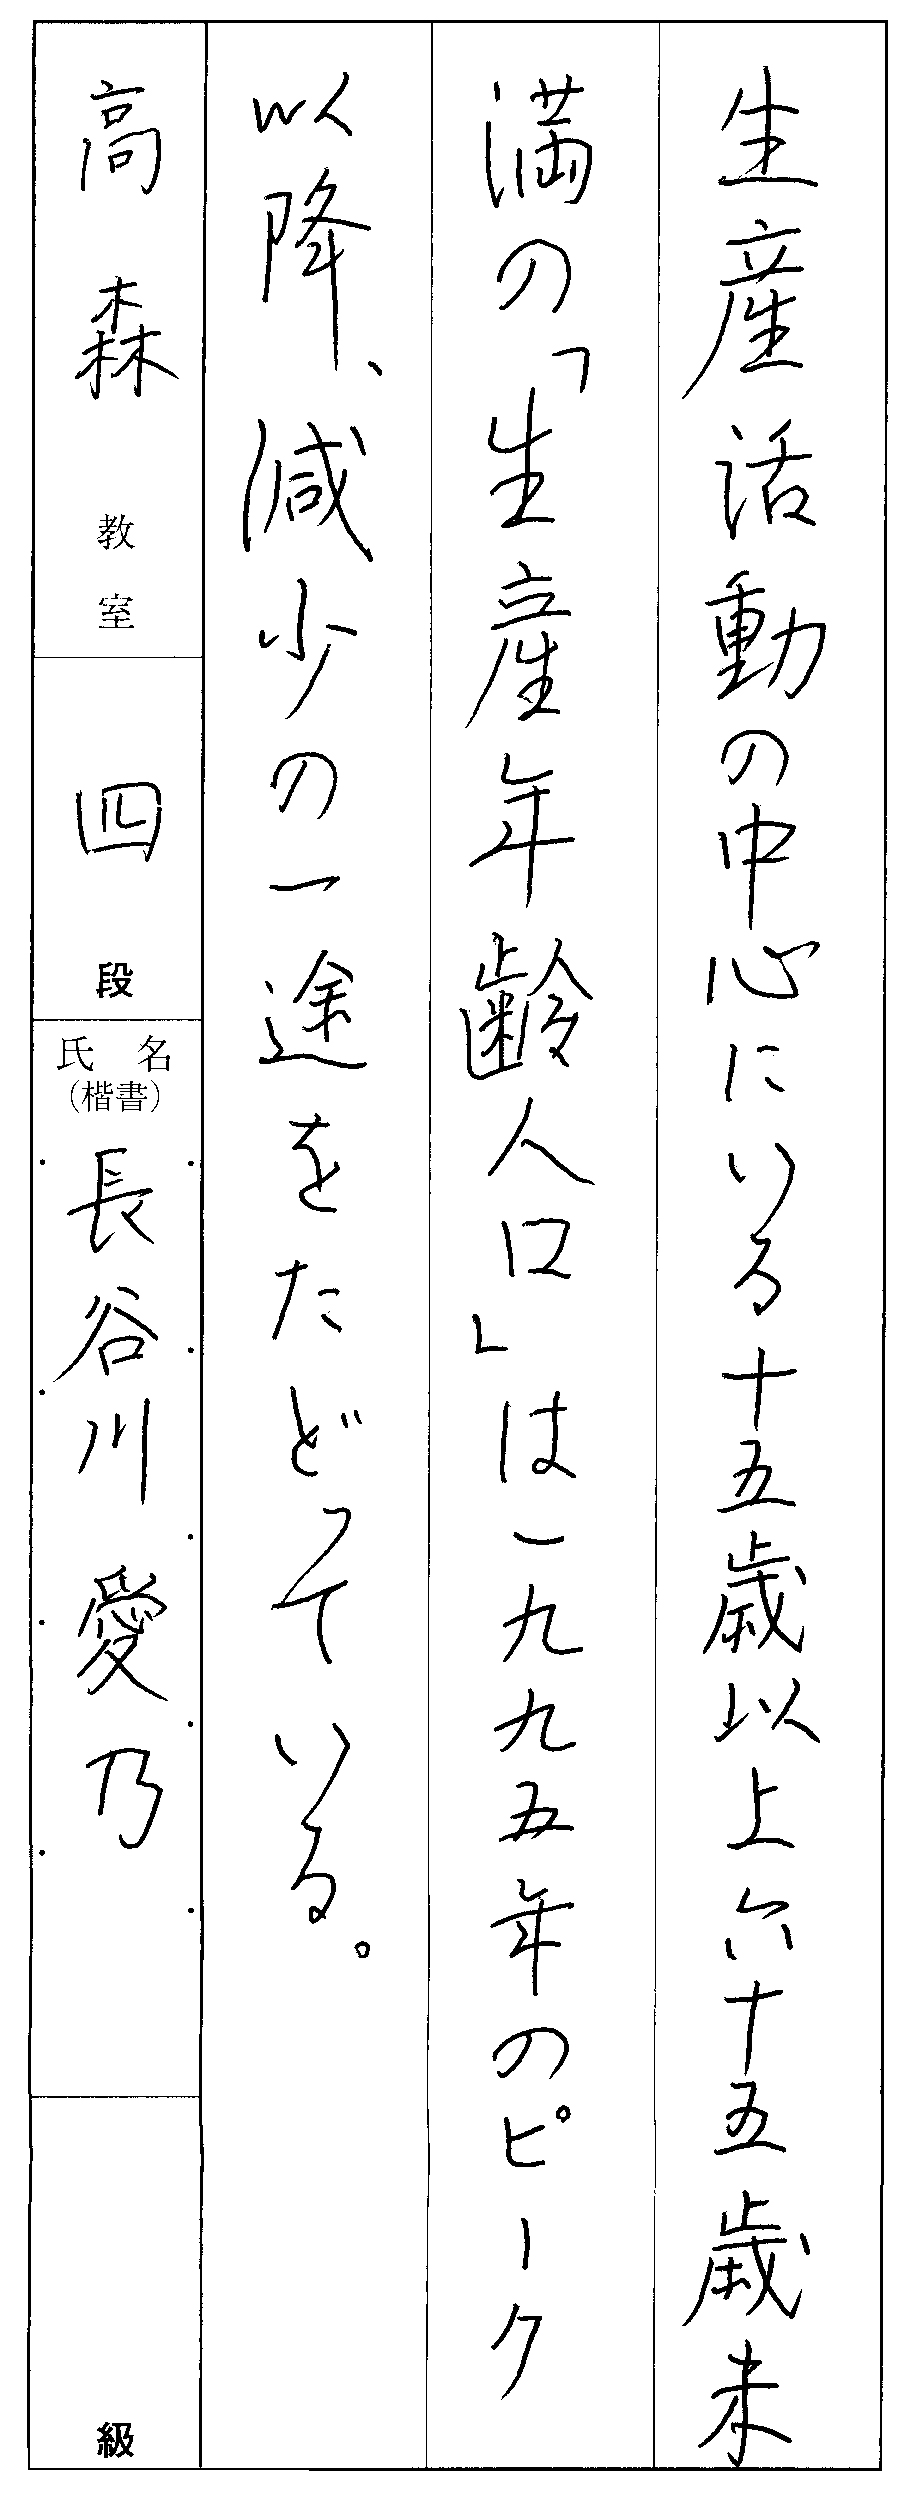 生産活動の中心にいる十五歳以上六十五歳未
満の「生産年齢人口」は一九九五年のピーク
以降、減少の一途をたどっている。
高森教室
四段
氏名
（楷書）
長谷川愛乃
級